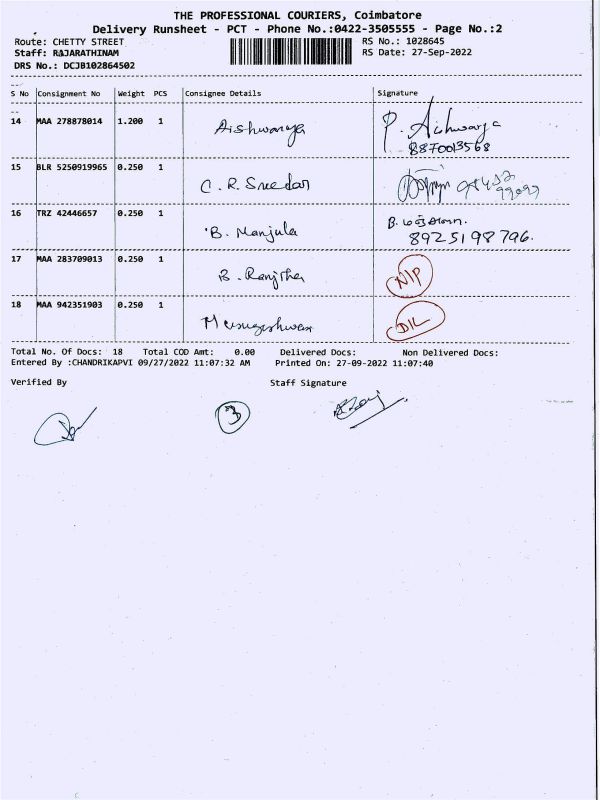 THE PROFESSIONAL COURIERS, Coimbatore
Delivery Runsheet - PCT - Phone No.:0422-3505555 - Page No.:2
Route: CHETTY STREET RS No.: 1028645
Staff: RAJARATHINAM RS Date: 27-Sep-2022
DRS No.: DCJB102864502
S No Consignment No Weight PCS Consignee Details Signature
14 MAA 278878014 1.200 1 Aishwarya P. Aishwarya
8870013568
15 BLR 5250919965 0.250 1 C. R. Sreedar
16 TRZ 42446657 0.250 1 B. Manjula B. மஞ்சுளா.
8925198796.
17 MAA 283709013 0.250 1 B. Ranjitha N/P
18 MAA 942351903 0.250 1 Murugeshwari D/L
Total No. Of Docs: 18 Total COD Amt: 0.00 Delivered Docs: Non Delivered Docs:
Entered By :CHANDRIKAPVI 09/27/2022 11:07:32 AM Printed On: 27-09-2022 11:07:40
Verified By Staff Signature
3